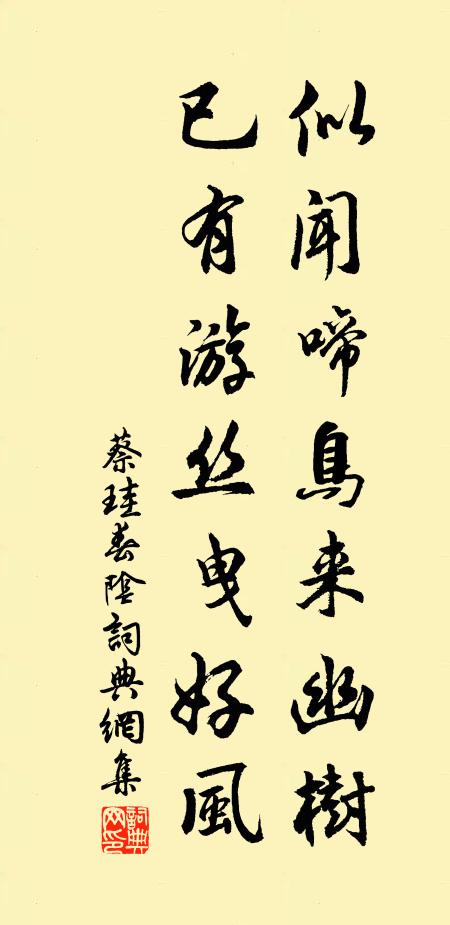 似闻啼鳥来幽樹
已有游丝曳好風
蔡珪春陰詞典網集
詞典
网印